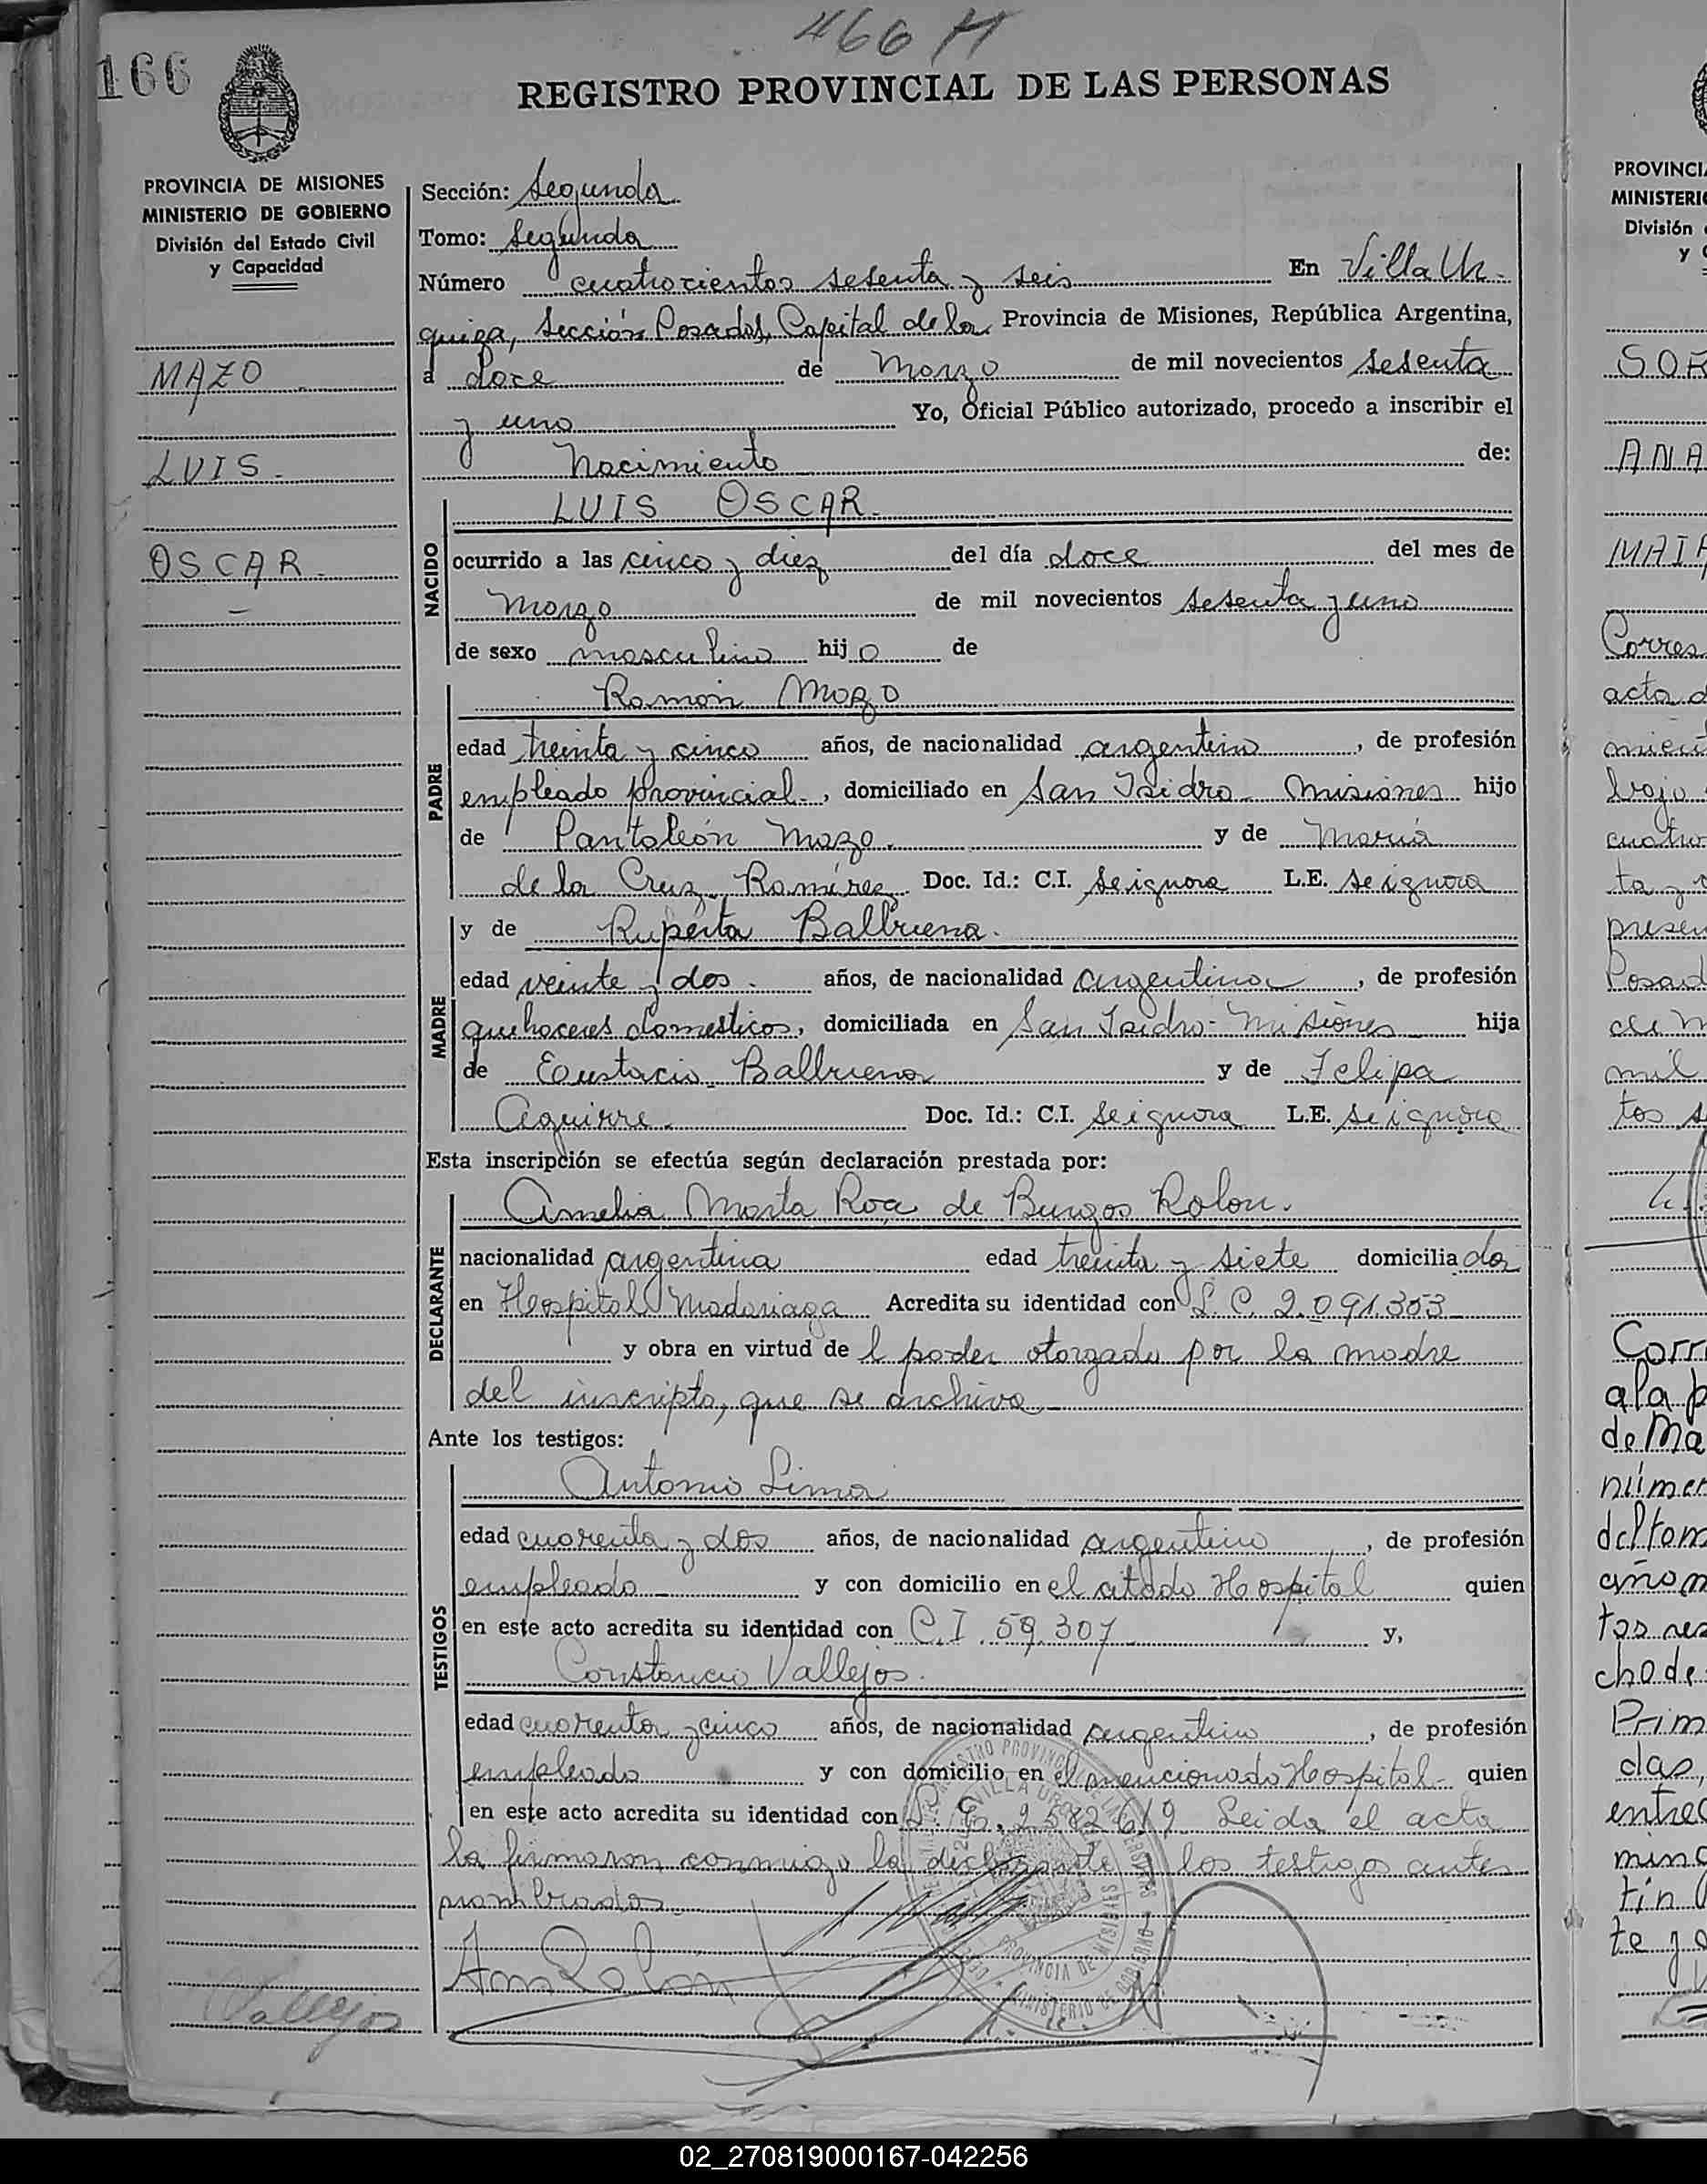 466 M
166
REGISTRO PROVINCIAL DE LAS PERSONAS
PROVINCIA DE MISIONES
MINISTERIO DE GOBIERNO
División del Estado Civil
y Capacidad
MAZO
LUIS.
OSCAR.
Sección: Segunda
Tomo: Segunda
Número cuatrocientos sesenta y seis En Villa Ur-
quiza, Sección Posadas, Capital de la Provincia de Misiones, República Argentina,
a doce de Marzo de mil novecientos sesenta
y uno Yo, Oficial Público autorizado, procedo a inscribir el
Nacimiento de:
NACIDO
LUIS OSCAR.
ocurrido a las cinco y diez del día doce del mes de
Marzo de mil novecientos sesenta y uno
de sexo masculino hijo de
PADRE
Ramón Mazo
edad treinta y cinco años, de nacionalidad argentino, de profesión
empleado provincial., domiciliado en San Isidro- Misiones hijo
de Pantaleón Mazo. y de María
de la Cruz Ramírez Doc. Id.: C.I. se ignora L.E. se ignora
MADRE
y de Ruperta Balbuena.
edad veinte y dos. años, de nacionalidad argentina, de profesión
quehaceres domesticos, domiciliada en San Isidro- Misiones hija
de Eustacio Balbuena y de Felipa
Aguirre. Doc. Id.: C.I. se ignora L.E. se ignora
Esta inscripción se efectúa según declaración prestada por:
DECLARANTE
Amelia Marta Roa de Burgos Rolon.
nacionalidad argentina edad treinta y siete domiciliada
en Hospital Madariaga Acredita su identidad con L. C. 2.091.303
y obra en virtud del poder otorgado por la madre
del inscripto, que se archiva
Ante los testigos:
TESTIGOS
Antonio Lima
edad cuarenta y dos años, de nacionalidad argentino, de profesión
empleado y con domicilio en el citado Hospital quien
en este acto acredita su identidad con C.I. 59.307 y,
Constancio Vallejos.
edad cuarenta y cinco años, de nacionalidad argentino, de profesión
empleado y con domicilio en el mencionado Hospital- quien
en este acto acredita su identidad con 2582619 Leida el acta
la firmaron conmigo la declarante y los testigos antes
nombrados.
Vallejos
PROVINCIA DE MISIONES
PROVINCI
MINISTERI
División
y
SO
ANA
Corres
acta d
bajo
cuatro
ta y
presen
Posad
mil
tos s
Corr
a la p
de Ma
númer
del tom
año m
tos
cho de
Prim
das,
entre
min
tin
te y
02_270819000167-042256